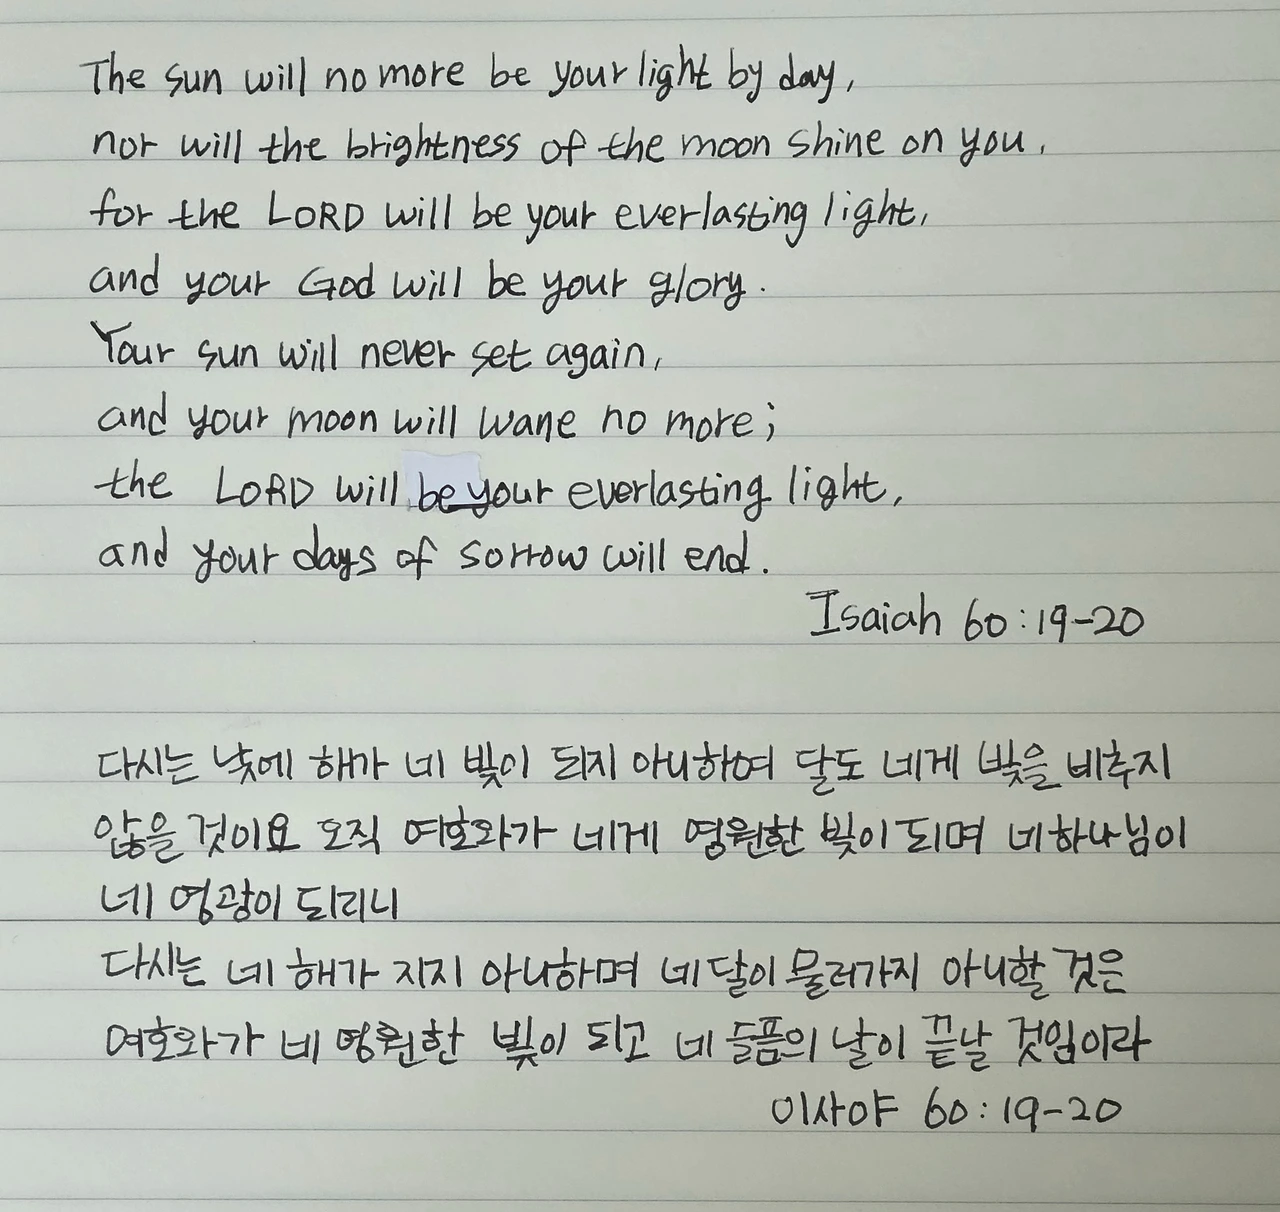 The sun will no more be your light by day,
nor will the brightness of the moon shine on you,
for the LORD will be your everlasting light,
and your God will be your glory.
Your sun will never set again,
and your moon will wane no more;
the LORD will be your everlasting light,
and your days of sorrow will end.
Isaiah 60:19-20
다시는 낮에 해가 네 빛이 되지 아니하며 달도 네게 빛을 비추지
않을 것이요 오직 여호와가 네게 영원한 빛이 되며 네 하나님이
네 영광이 되리니
다시는 네 해가 지지 아니하며 네 달이 물러가지 아니할 것은
여호와가 네 영원한 빛이 되고 네 슬픔의 날이 끝날 것임이라
이사야 60:19-20